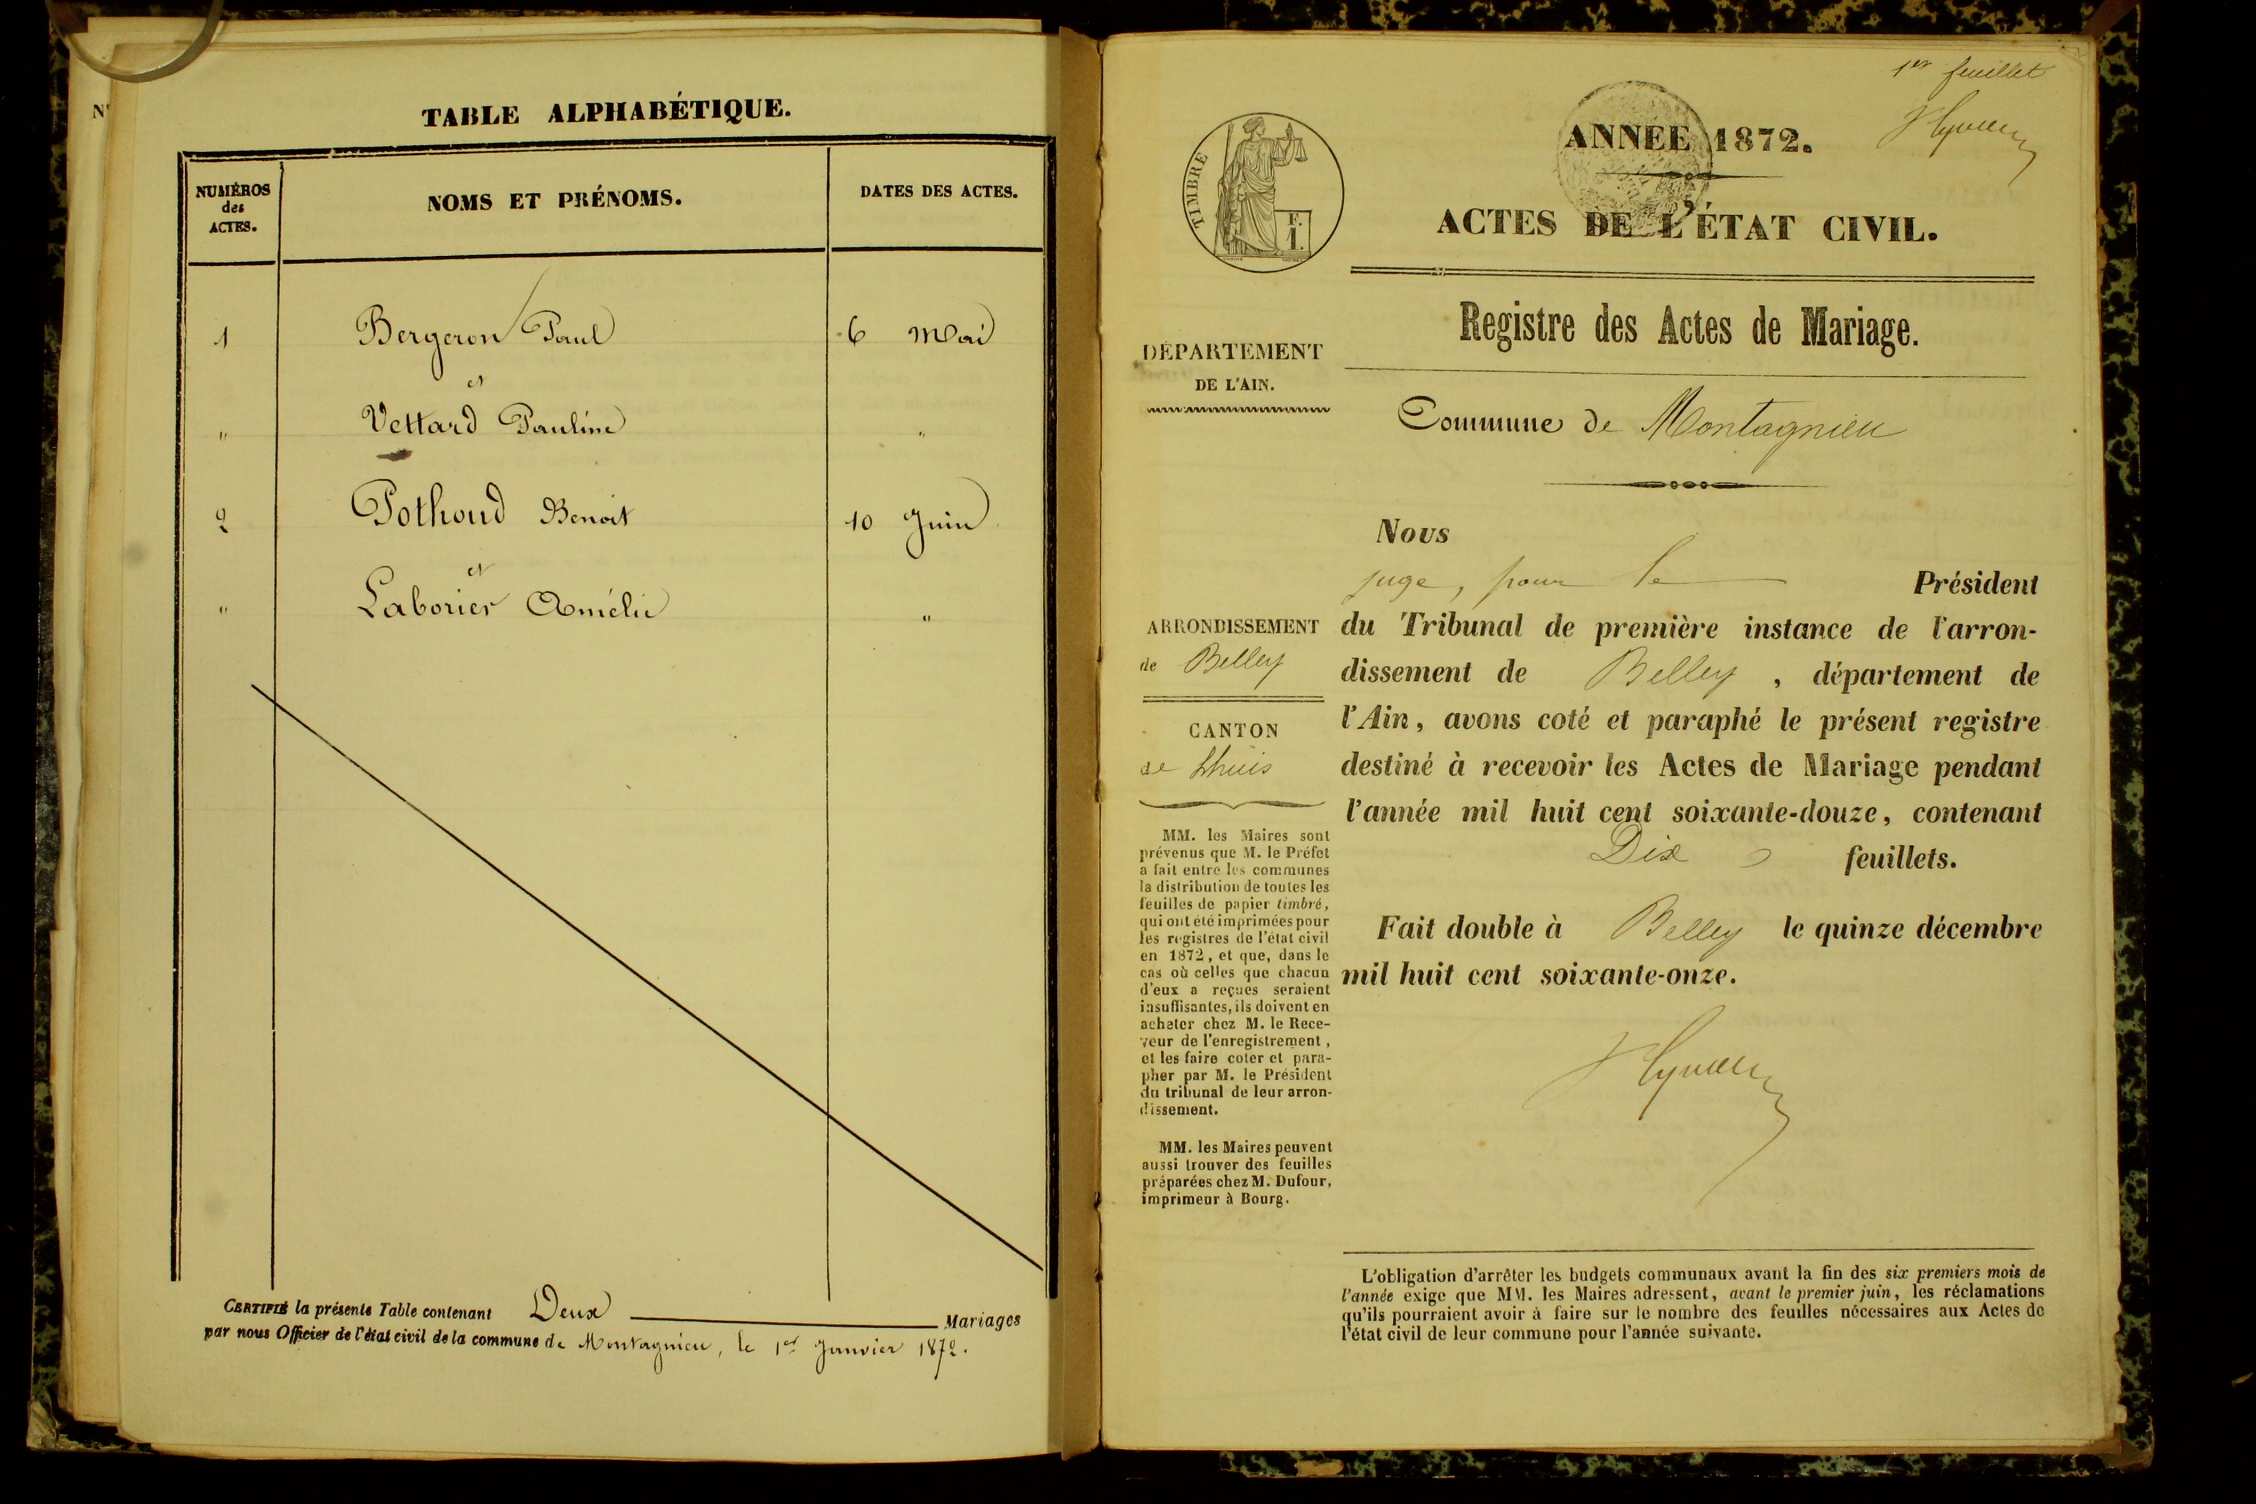 TABLE ALPHABÉTIQUE.
NUMÉROS
des
ACTES.
NOMS ET PRÉNOMS.
DATES DES ACTES.
1 Bergeron Paul 6 Mai
et
" Vettard Pauline "
2 Pothoud Benoit 10 Juin
et
" Laborier Amélie "
CERTIFIÉ la présente Table contenant Deux Mariages
par nous Officier de l'état civil de la commune de Montagnieu, le 1er Janvier 1872.
1er feuillet
TIMBRE
F.
1.
ANNEE 1872.
ACTES DE L'ÉTAT CIVIL.
Registre des Actes de Mariage.
DÉPARTEMENT
DE L'AIN.
Commune de Montagnieu
ARRONDISSEMENT
de Belley
CANTON
de Lhuis
MM. les Maires sont
prévenus que M. le Préfet
a fait entre les communes
la distribution de toutes les
feuilles de papier timbré,
qui ont été imprimées pour
les registres de l'état civil
en 1872, et que, dans le
cas où celles que chacun
d'eux a reçues seraient
insuffisantes, ils doivent en
acheter chez M. le Rece-
veur de l'enregistrement,
et les faire coter et para-
pher par M. le Président
du tribunal de leur arron-
dissement.
MM. les Maires peuvent
aussi trouver des feuilles
préparées chez M. Dufour,
imprimeur à Bourg.
Nous
juge, pour le Président
du Tribunal de première instance de l'arron-
dissement de Belley, département de
l'Ain, avons coté et paraphé le présent registre
destiné à recevoir les Actes de Mariage pendant
l'année mil huit cent soixante-douze, contenant
Dix feuillets.
Fait double à Belley le quinze décembre
mil huit cent soixante-onze.
L'obligation d'arrêter les budgets communaux avant la fin des six premiers mois de
l'année exige que MM. les Maires adressent, avant le premier juin, les réclamations
qu'ils pourraient avoir à faire sur le nombre des feuilles nécessaires aux Actes de
l'état civil de leur commune pour l'année suivante.